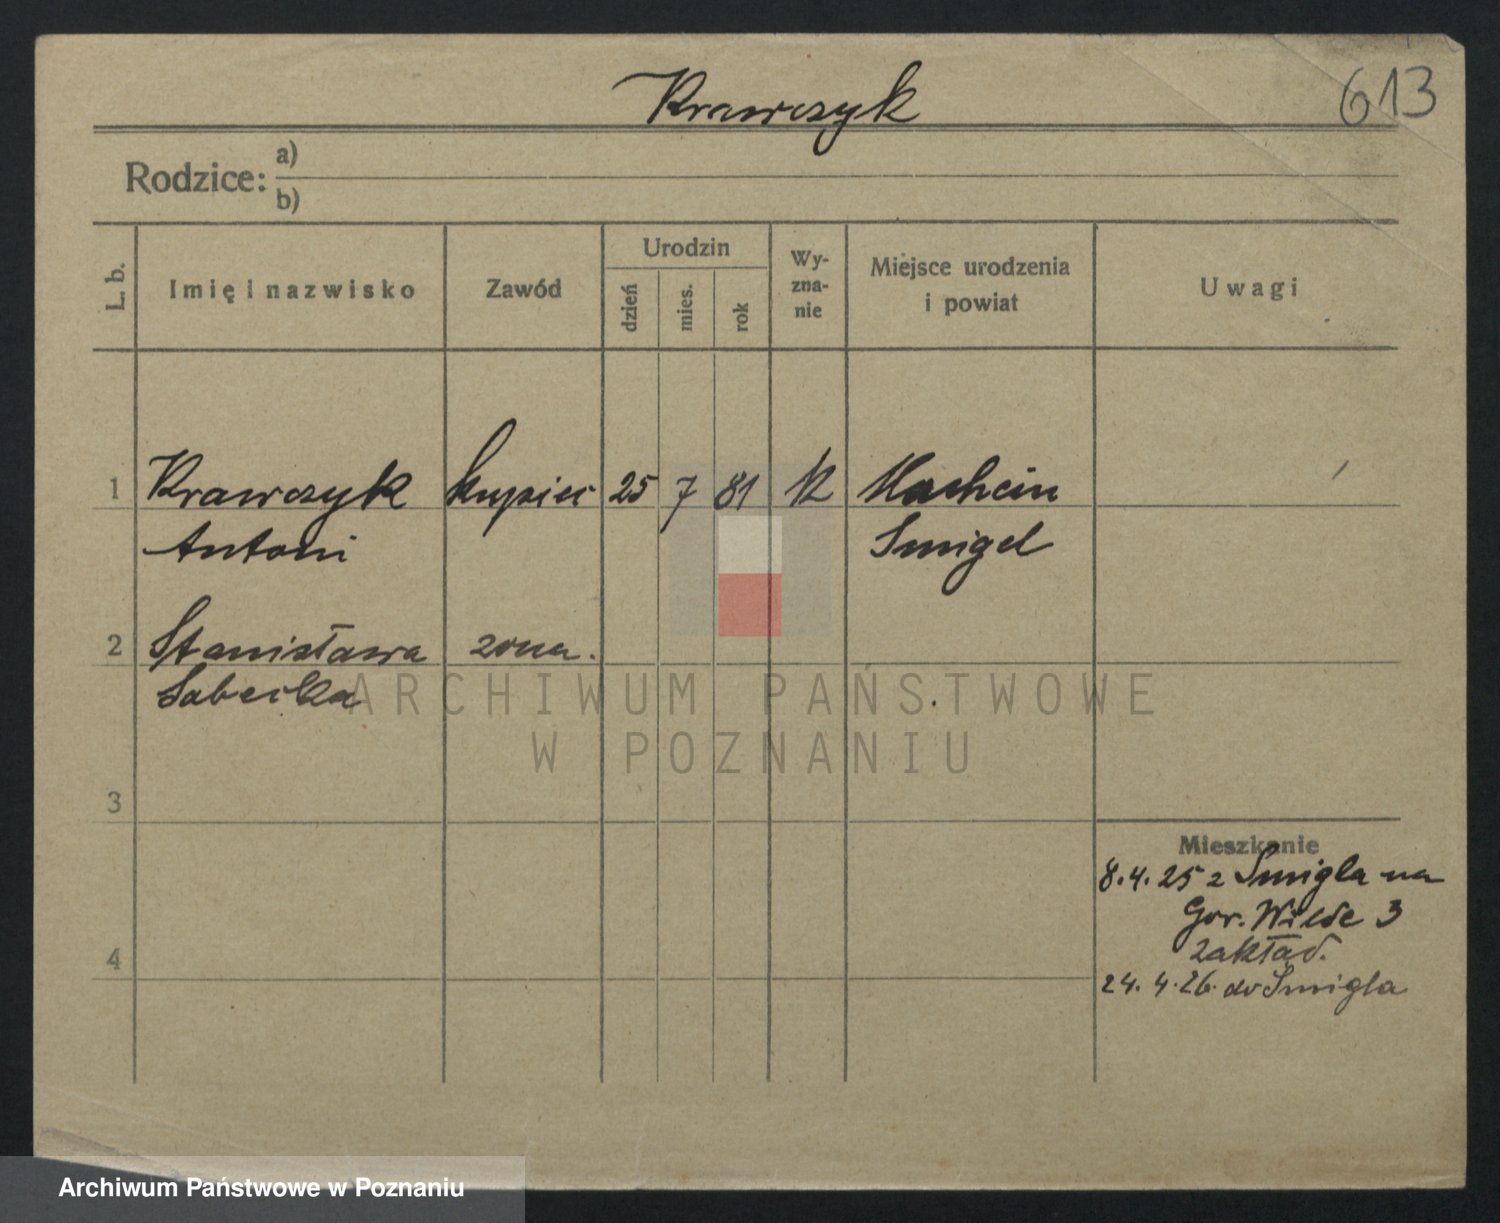 Krawczyk
613
Rodzice: a)
b)
L. b.
Imię i nazwisko
Zawód
Urodzin
dzień
mies.
rok
Wy-
zna-
nie
Miejsce urodzenia
i powiat
Uwagi
1 Krawczyk kupiec 25 7 81 k Machcin
Antoni Smigel
2 Stanisława zona.
Sabecka
ARCHIWUM PAŃSTWOWE
W POZNANIU
3
Mieszkanie
8.4.25 z Smigla na
Gor. Wilde 3
4 zakład.
24.4.26. do Smigla
Archiwum Państwowe w Poznaniu